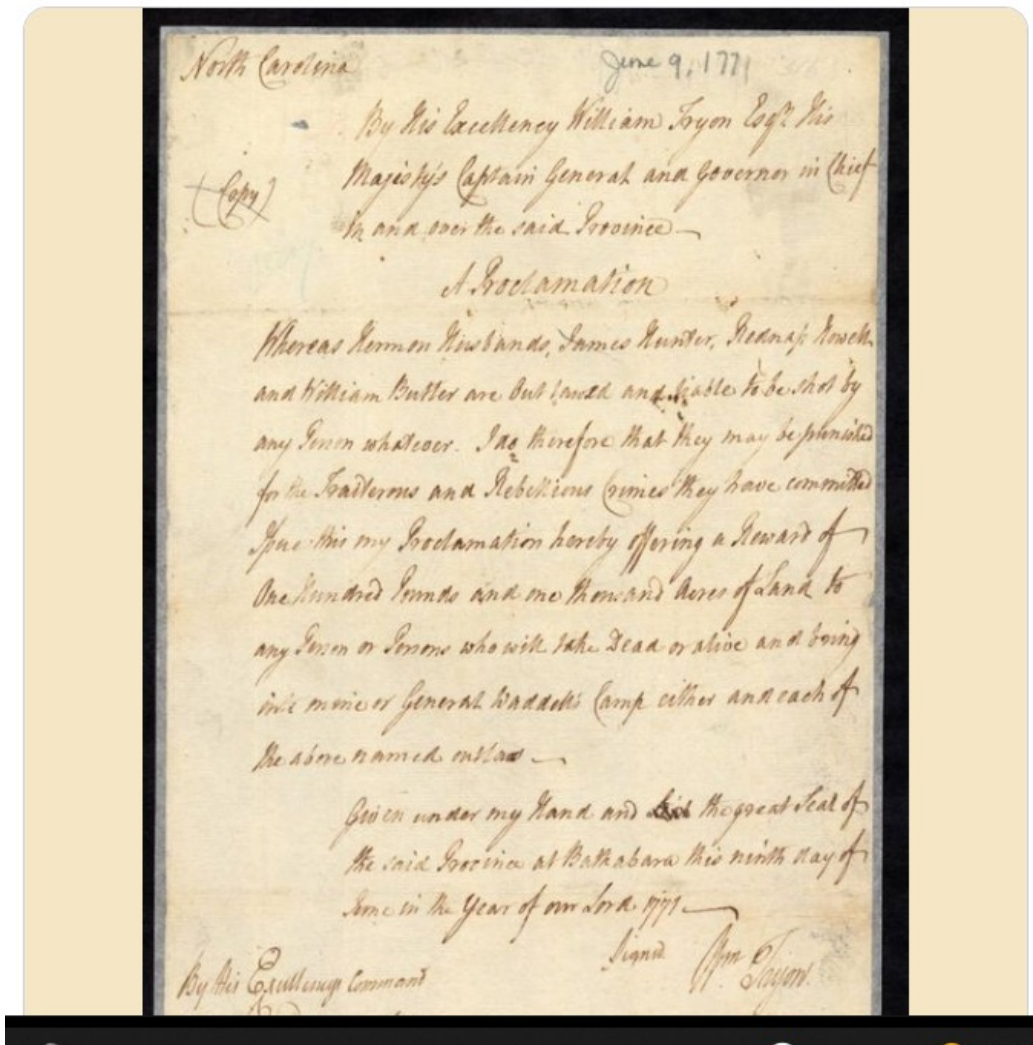 North Carolina
June 9, 1771
By His Excellency William Tryon Esqr. His
Majesty's Captain General and Governor in Chief
(Copy)
in and over the said Province—
A Proclamation
Whereas Hermon Husbands, James Hunter, Rednap Howell
and William Butler are Out lawed and liable to be shot by
any Person whatever. I do therefore that they may be punished
for the Traiterous and Rebellious Crimes they have committed
Issue this my Proclamation hereby offering a Reward of
One Hundred Pounds and one thousand Acres of Land to
any Person or Persons who will take Dead or alive and bring
into mine or General Waddell's Camp either and each of
the above named outlaws—
Given under my Hand and the great Seal of
the said Province at Bathabara this ninth day of
June in the Year of our Lord 1771—
Signed Wm. Tryon.
By His Excellencys Command